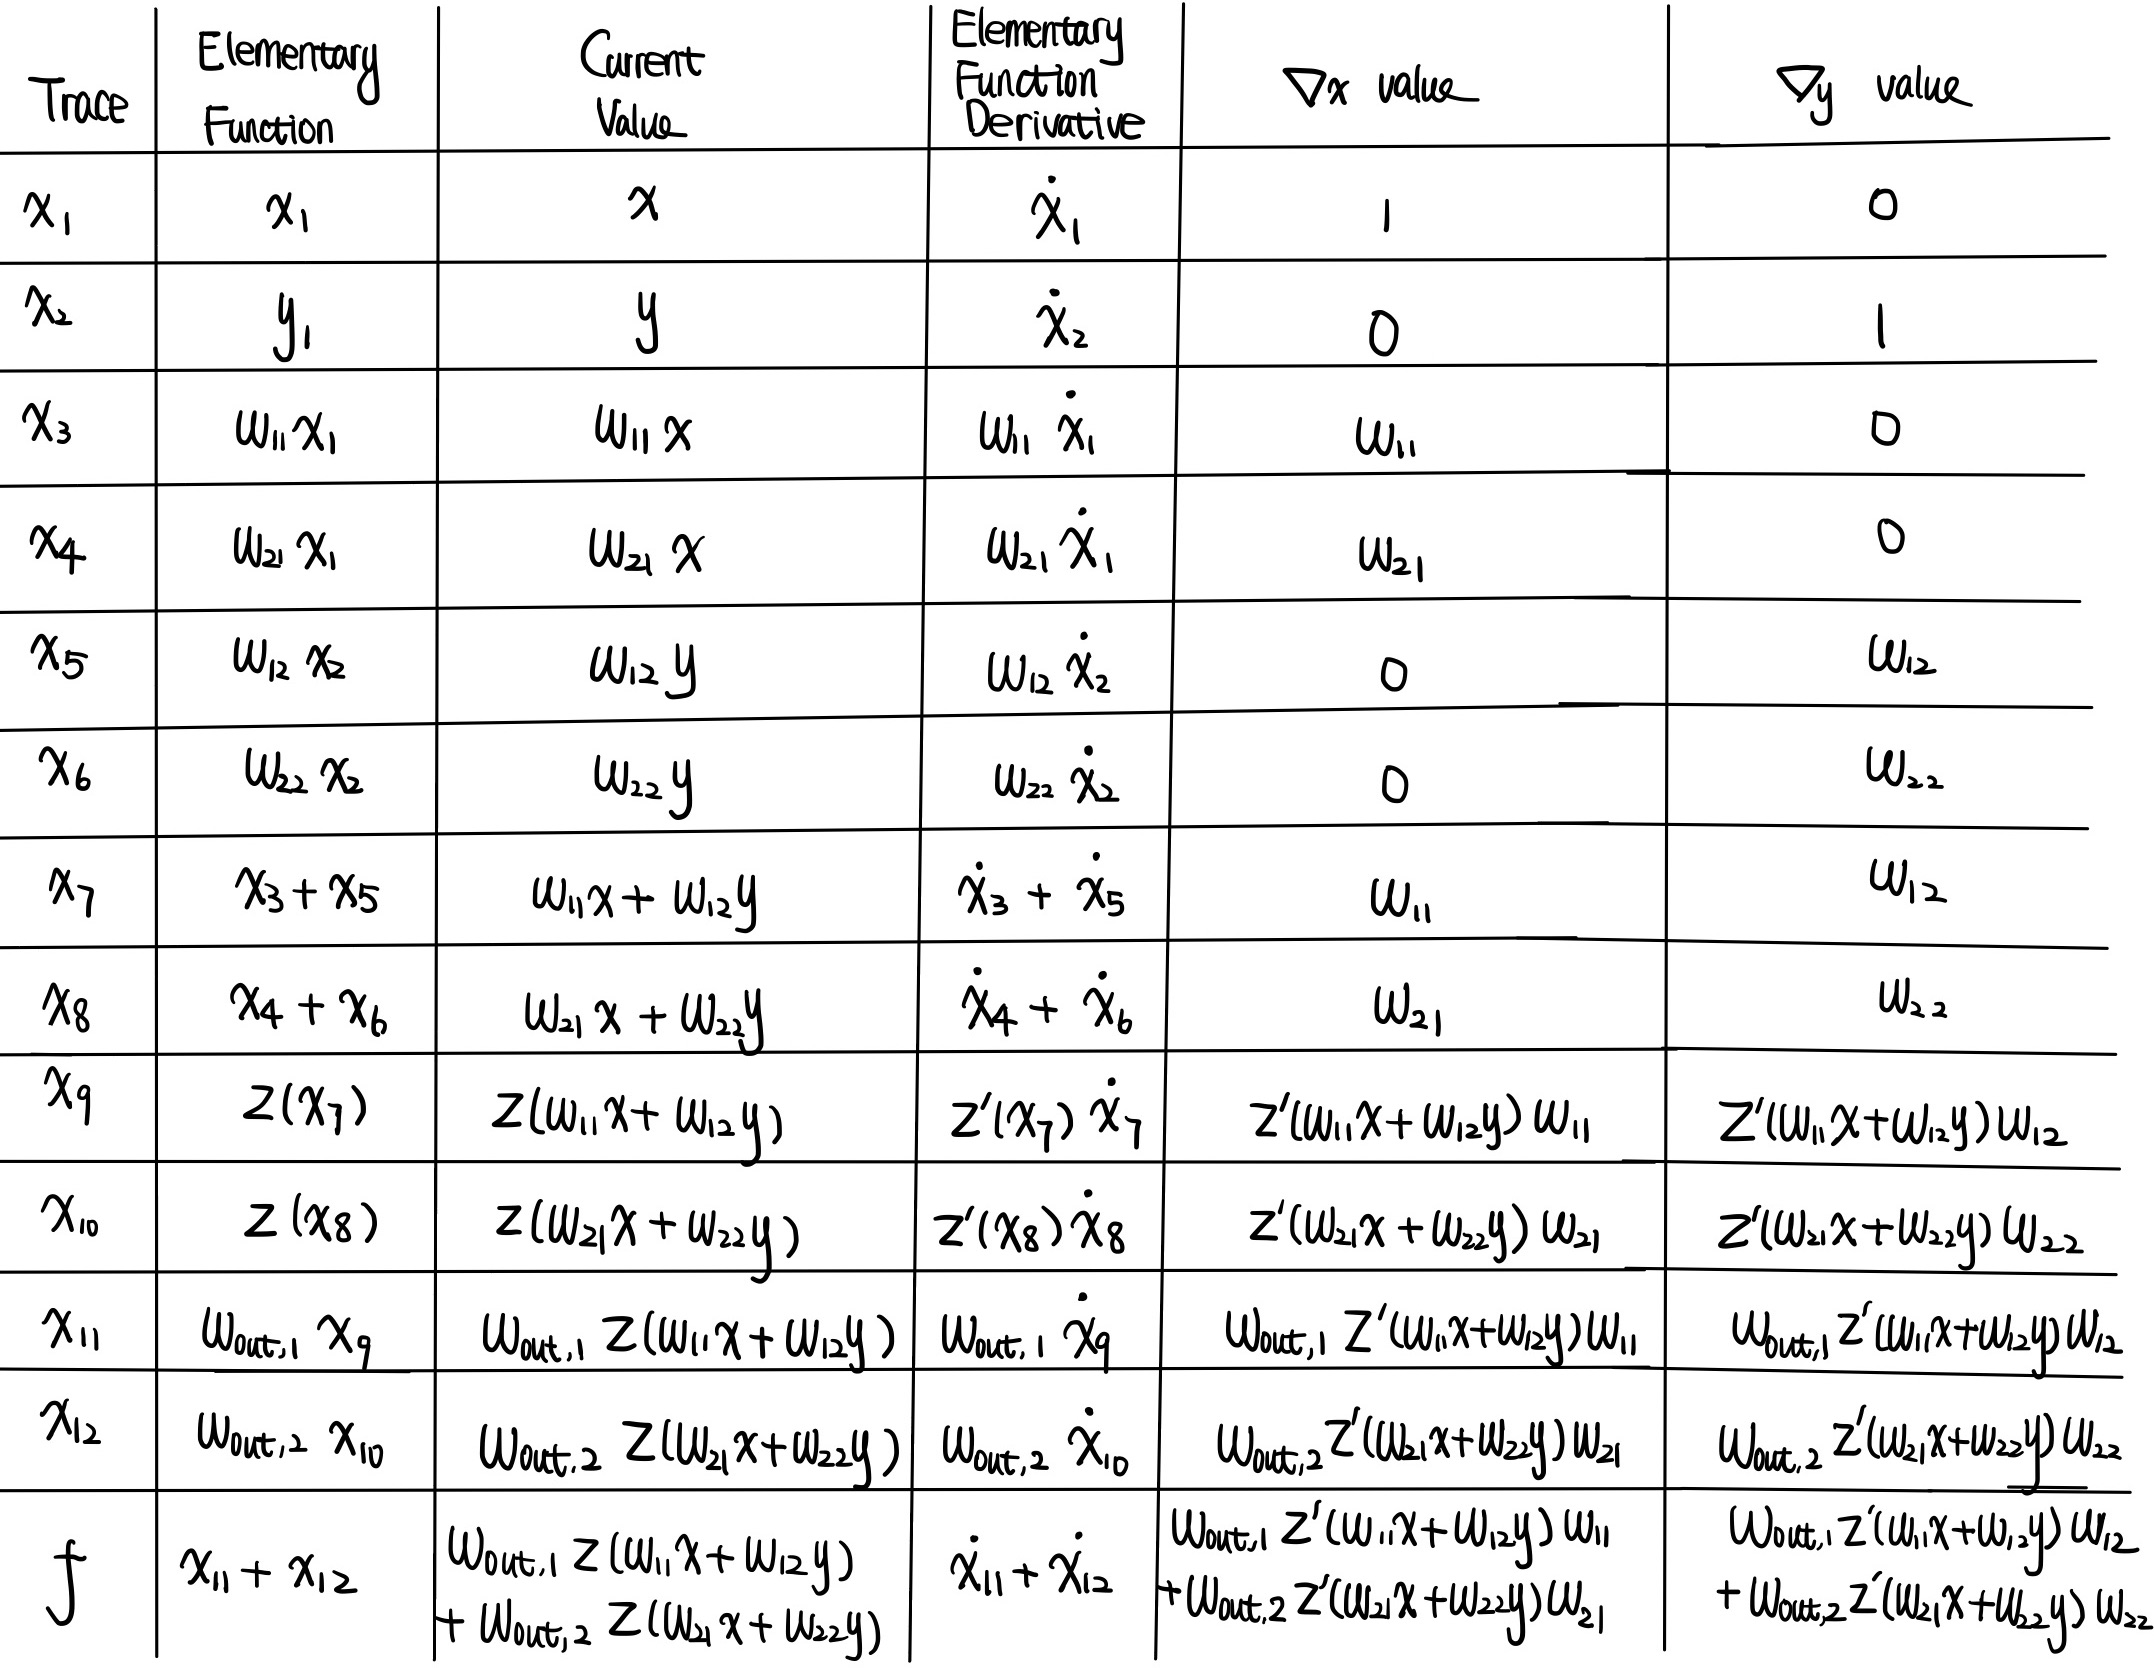 Trace | Elementary Function | Current Value | Elementary Function Derivative | ∇x value | ∇y value
x₁ | x₁ | x | ẋ₁ | 1 | 0
x₂ | y₁ | y | ẋ₂ | 0 | 1
x₃ | w₁₁ x₁ | w₁₁ x | w₁₁ ẋ₁ | w₁₁ | 0
x₄ | w₂₁ x₁ | w₂₁ x | w₂₁ ẋ₁ | w₂₁ | 0
x₅ | w₁₂ x₂ | w₁₂ y | w₁₂ ẋ₂ | 0 | w₁₂
x₆ | w₂₂ x₂ | w₂₂ y | w₂₂ ẋ₂ | 0 | w₂₂
x₇ | x₃ + x₅ | w₁₁x + w₁₂y | ẋ₃ + ẋ₅ | w₁₁ | w₁₂
x₈ | x₄ + x₆ | w₂₁x + w₂₂y | ẋ₄ + ẋ₆ | w₂₁ | w₂₂
x₉ | z(x₇) | z(w₁₁x + w₁₂y) | z′(x₇) ẋ₇ | z′(w₁₁x + w₁₂y) w₁₁ | z′(w₁₁x + w₁₂y) w₁₂
x₁₀ | z(x₈) | z(w₂₁x + w₂₂y) | z′(x₈) ẋ₈ | z′(w₂₁x + w₂₂y) w₂₁ | z′(w₂₁x + w₂₂y) w₂₂
x₁₁ | w_out,1 x₉ | w_out,1 z(w₁₁x + w₁₂y) | w_out,1 ẋ₉ | w_out,1 z′(w₁₁x + w₁₂y) w₁₁ | w_out,1 z′(w₁₁x + w₁₂y) w₁₂
x₁₂ | w_out,2 x₁₀ | w_out,2 z(w₂₁x + w₂₂y) | w_out,2 ẋ₁₀ | w_out,2 z′(w₂₁x + w₂₂y) w₂₁ | w_out,2 z′(w₂₁x + w₂₂y) w₂₂
f | x₁₁ + x₁₂ | w_out,1 z(w₁₁x + w₁₂y) + w_out,2 z(w₂₁x + w₂₂y) | ẋ₁₁ + ẋ₁₂ | w_out,1 z′(w₁₁x + w₁₂y) w₁₁ + w_out,2 z′(w₂₁x + w₂₂y) w₂₁ | w_out,1 z′(w₁₁x + w₁₂y) w₁₂ + w_out,2 z′(w₂₁x + w₂₂y) w₂₂